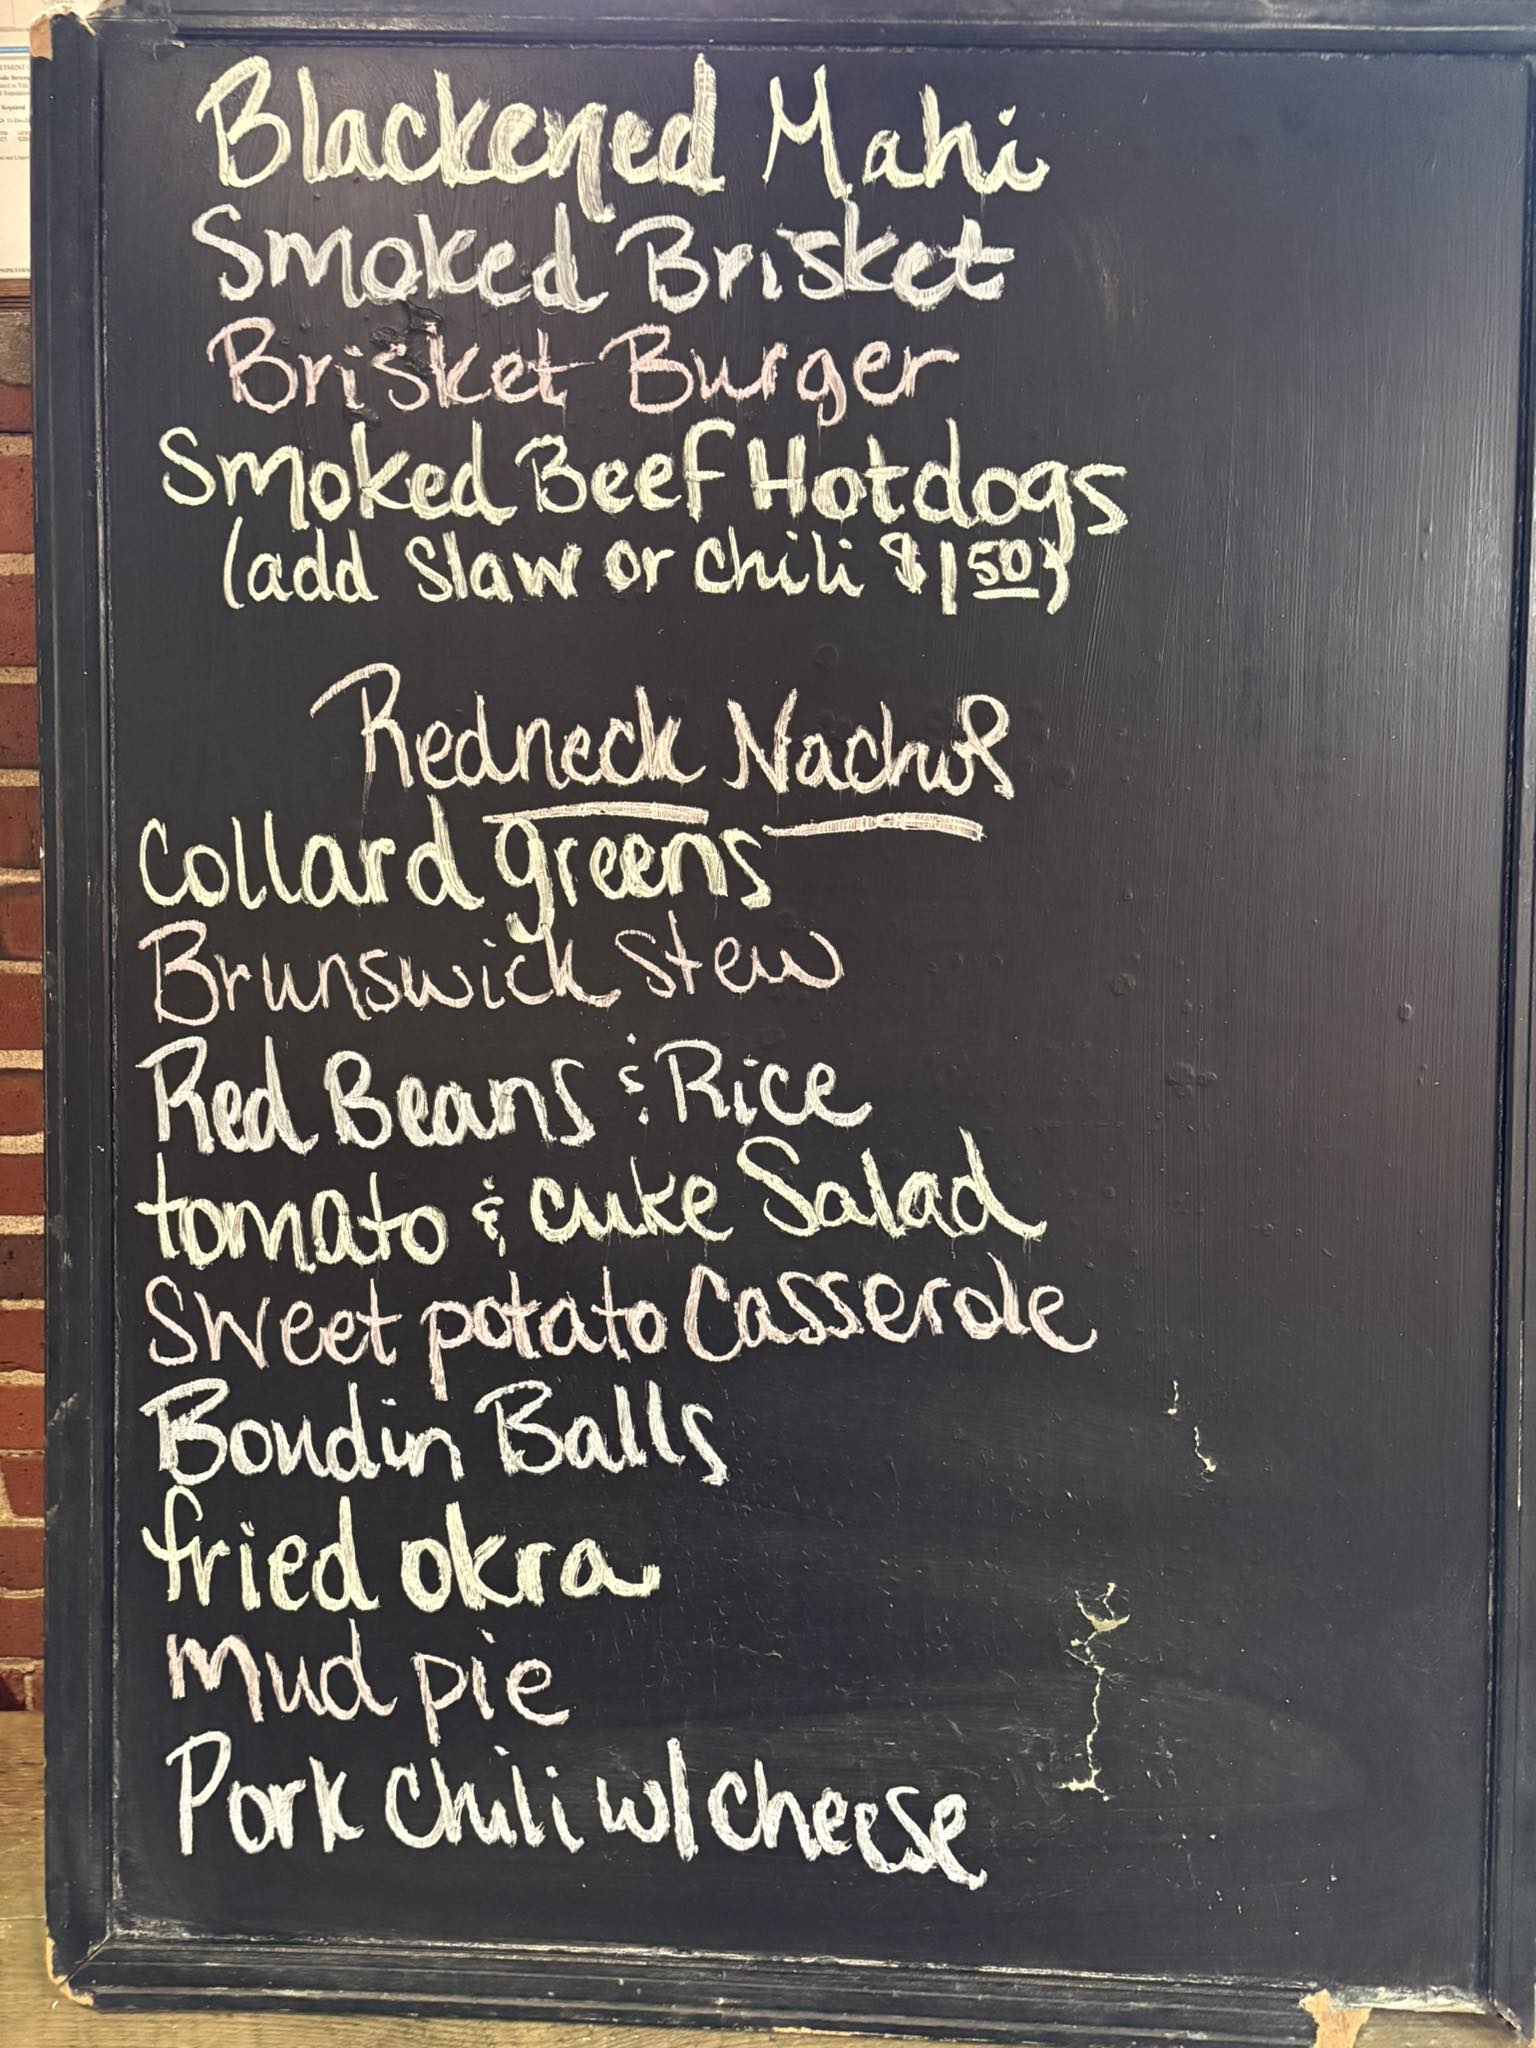 Blackened Mahi
Smoked Brisket
Brisket Burger
Smoked Beef Hotdogs
(add Slaw or Chili $1.50)
Redneck Nachos
Collard greens
Brunswick Stew
Red Beans & Rice
tomato & cuke Salad
Sweet potato Casserole
Boudin Balls
fried okra
Mud pie
Pork Chili w/ Cheese